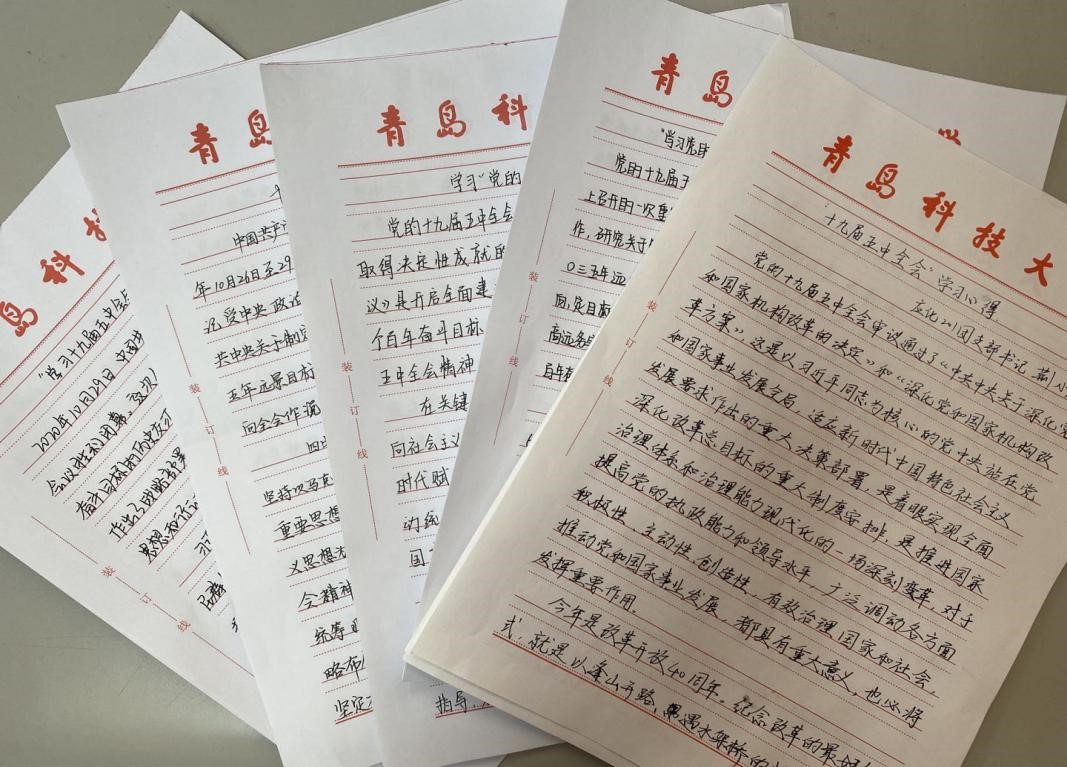 岛科技
"学习十九届五中全
2020年10月29日,中国共
会议胜利闭幕,这次
奋斗目标的历史交汇
作出了战略部署
思想和行
装订线
青岛
中国共产
年10月26日至29
记受中央政论
共中央关于制定
五年远景目标
向全会作说
坚持以马克
重要思想
义思想为
会精神
统筹
略布
坚定
装订线
青岛科
学习"党的
党的十九届五中全会
取得决定性成就的
议》是开启全面建
个百年奋斗目标
五中全会精神
在关键
向社会主义
时代赋
动纲
国
指导
装订线
青岛
"学习党的
党的十九届五
上召开的一次重
作,研究关于
〇三五年远
面,定目标
高远务
百年
装订线
青岛科技大
"十九届五中全会"学习心得
左化211团支部书记 荆小
党的十九届五中全会审议通过了《中共中央关于深化党
和国家机构改革的决定》和《深化党和国家机构改
革方案》,这是以习近平同志为核心的党中央站在党
和国家事业发展全局,适应新时代中国特色社会主义
发展要求作出的重大决策部署,是着眼实现全面
深化改革总目标的重大制度安排,是推进国家
治理体系和治理能力现代化的一场深刻变革,对于
提高党的执政能力和领导水平,广泛调动各方面
积极性、主动性、创造性,有效治理国家和社会,
推动党和国家事业发展,都具有重大意义,也必将
发挥重要作用。
今年是改革开放40周年。纪念改革的最好
式,就是以逢山开路、遇水架桥的
装订线